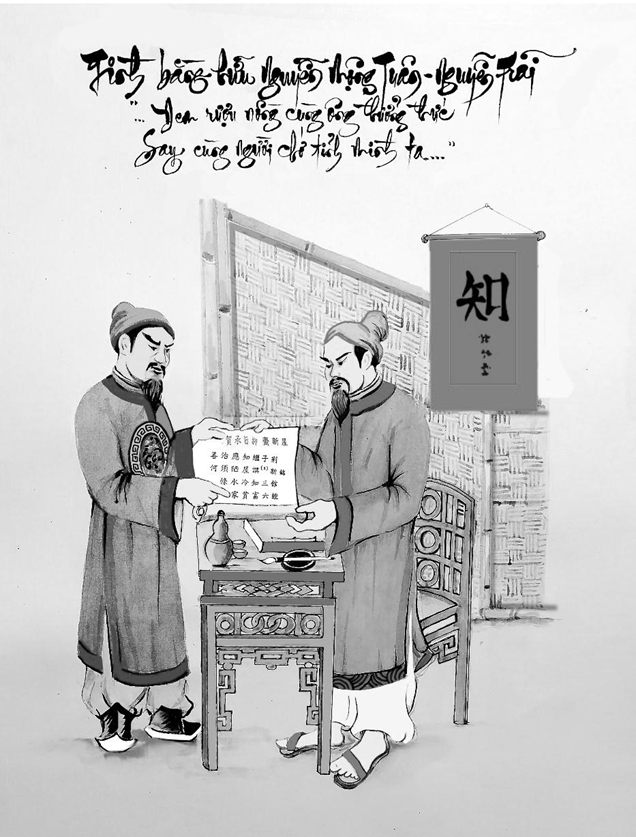 Tình bằng hữu Nguyễn Mộng Tuân - Nguyễn Trãi
"... Đem rượu nồng cùng ông thưởng thức
Say cùng người chớ tỉnh mình ta..."
知
賀承旨 新
善治應知繼子荊
何須陋屋 斯銘
條水冷知三館
家貧富六經